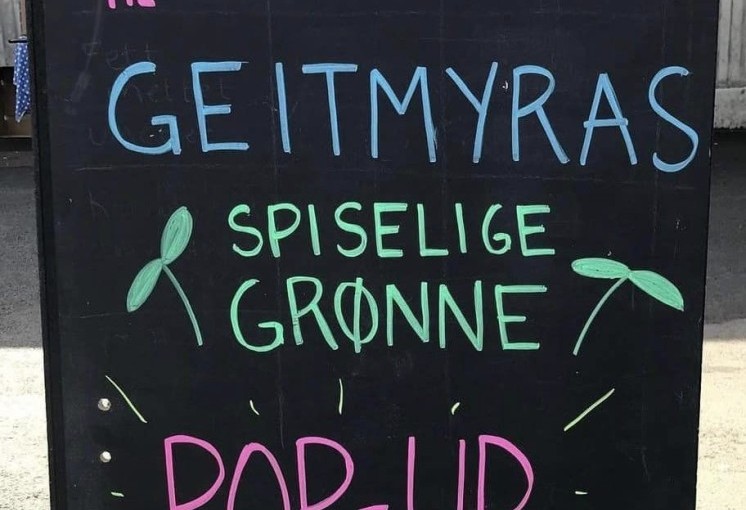 GEITMYRAS
SPISELIGE
GRØNNE
POP-UP